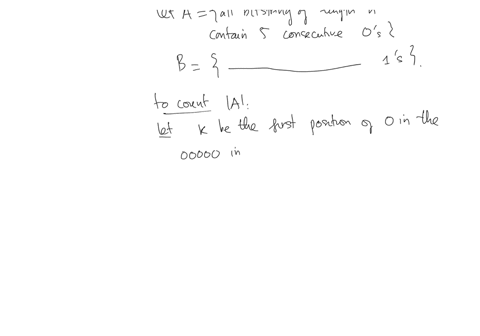 let A = { all bitstring of length
contain 5 consecutive 0's }
B = { ———— 1's }.
to count |A|:
let k be the first position of 0 in the
00000 in